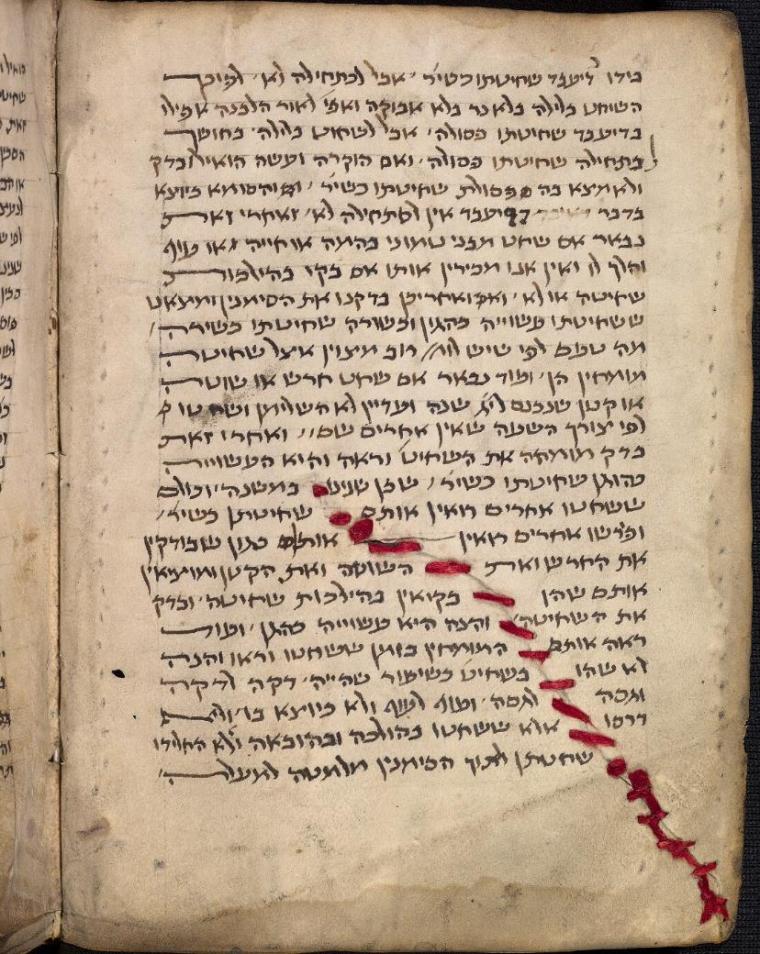 בידו דיעבד שחיטתו כשיר׳ אבל לכתחילה לא׳ לפיכך
השוחט בלילה בלא נר בלא אבוקה ואפ׳ לאור הלבנה אפילו
בדיעבד שחיטתו פסולה׳ אבל לשחוט בלילה בחושך
בתחילה שחיטתו פסולה׳ ואם הוקרה ועשה הואיל ובדק
ולא מצא בה פסולת שחיטתו כשיר׳ והסומא כיוצא
בדבר דיעבד אין לכתחילה לא׳ ואחרי זאת
נבאר אם שחט מבני שמוני בהמה או חייה או עוף
והלך לו ואין אנו מכירין אותו אם בקי בהילכות
שחיטה או לא׳ ואם ואחרי כן בדקנו את הסימנין ומצאנו
ששחיטתו עשוייה כהגון וכשורה שחיטתו כשירה׳
מה טעם לפי שיש לומ׳ רוב מצויין אצל שחיטה
מומחין הן׳ ועוד נבאר אם שחט חרש או שוטה
או קטן שנכנס שנה ועדיין לא השלימן ושחטו
לפי צורך השעה שאין אחרים שם׳ ואחרי זאת
בדק מומחה את השחיט׳ וראה והיא העשוייה
כהוגן שחיטתו כשיר׳ שכן שנינו במשנה׳ וכולם
ששחטו אחרים רואין אותם שחיטתן כשיר׳
ופרשו אחרים רואין אותם כגון שבודקין
את החרש ואת השוטה ואת הקטן ומוציאין
אותם שהן בקואין בהילכות שחיטה׳ ובדק
את השחיטה׳ והנה היא עשוייה כהגן׳ ועוד
ראה אותם המומחין בזמן ששחטו וראו והנה
לא שהו בשחיט׳ כשיעור שהייה׳ דקה לדקה
וגסה לגסה׳ ועוף לעוף ולא כיוצא בו׳ ולא
דרסו אלא ששחטו בהולכה ובהובאה ולא החלידו
שחטתן לתוך הסימנין מלמטה למעלה׳